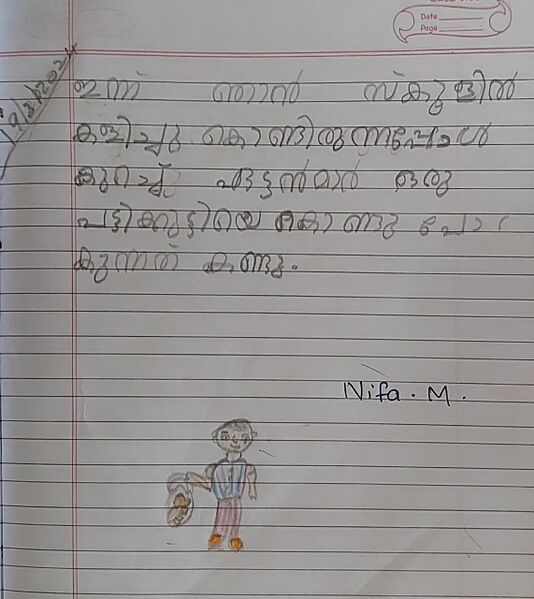 Date
Page
19/3/2024
ഇന്ന് ഞാൻ സ്കൂളിൽ
കളിച്ചു കൊണ്ടിരുന്നപ്പോൾ
കുറച്ച് ഏട്ടൻമാർ ഒരു
പട്ടിക്കുട്ടിയെ കൊണ്ടു പോ
കുന്നത് കണ്ടു.
Nifa. M.